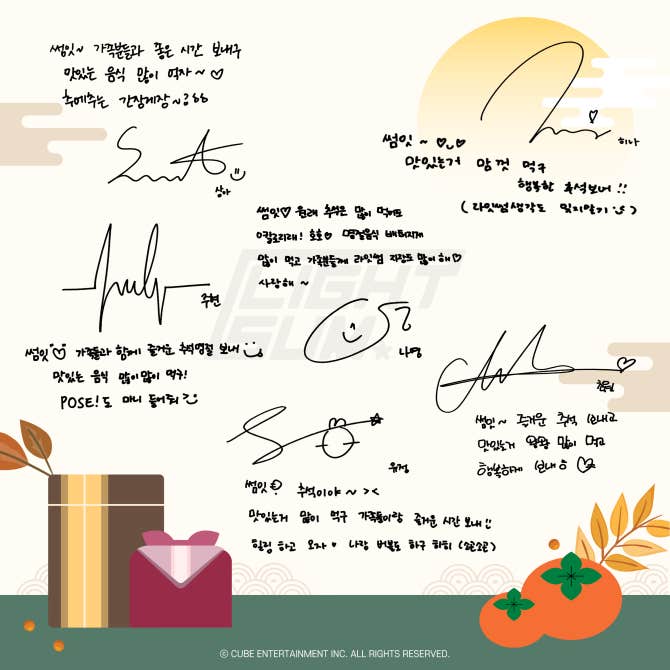 썸잇~ 가족분들과 좋은 시간 보내구
맛있는 음식 많이 먹자~♡
추메추는 간장게장~
상아
썸잇~ ♡◡♡
맛있는거 맘껏 먹구
행복한 추석보내!!
(라잇썸생각도 잊지말기 :))
히나
썸잇♡ 원래 추석은 많이 먹어도
0칼로리래! 호호♡ 명절음식 배터지게
많이 먹고 가족분들께 라잇썸 자랑도 많이 해♡
사랑해~
나영
LIGHT
SUM
주현
썸잇 가족들과 함께 즐거운 추석명절 보내
맛있는 음식 많이많이 먹구!
POSE!도 마니 들어줘
초원
썸잇~ 즐거운 추석 보내고
맛있는거 왕왕 많이 먹고
행복하게 보내 ♡
유정
썸잇 추석이야~ ><
맛있는거 많이 먹구 가족들이랑 즐거운 시간 보내!!
힐링 하고 오자♥ 나랑 버블도 하구 히히 (소곤소곤)
© CUBE ENTERTAINMENT INC. ALL RIGHTS RESERVED.